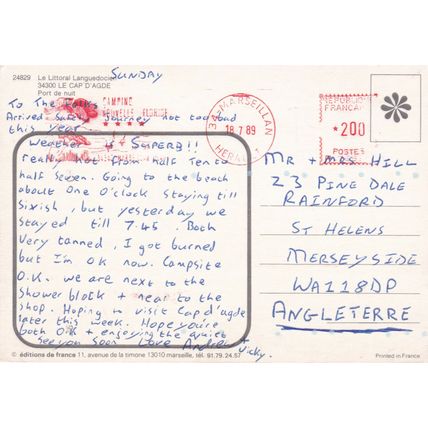 24829 Le Littoral Languedocien
34300 LE CAP D'AGDE
Port de nuit
SUNDAY
CAMPING
NOUVELLE FLORIDE
34-MARSEILLAN
18.7.89
HERAULT
REPUBLIQUE
FRANCAISE
*200
POSTES
To The Folks
Arrived Safe, Journey not too bad
this year.
Weather is SUPERB!!
really hot from half ten to
half seven. Going to the beach
about One O'clock staying till
sixish, but yesterday we
stayed till 7.45. Both
very tanned, I got burned
but I'm OK now. Campsite
O.K. we are next to the
shower block + near to the
shop. Hoping to visit Cap d'agde
later this week. Hope you're
both O.K + enjoying the quiet
see you soon Love Andrew +
Vicky.
MR + MRS HILL
23 PINE DALE
RAINFORD
ST HELENS
MERSEYSIDE
WA118DP
ANGLETERRE
© éditions de france 11, avenue de la timone 13010 marseille, tél. 91.79.24.57
Printed in France